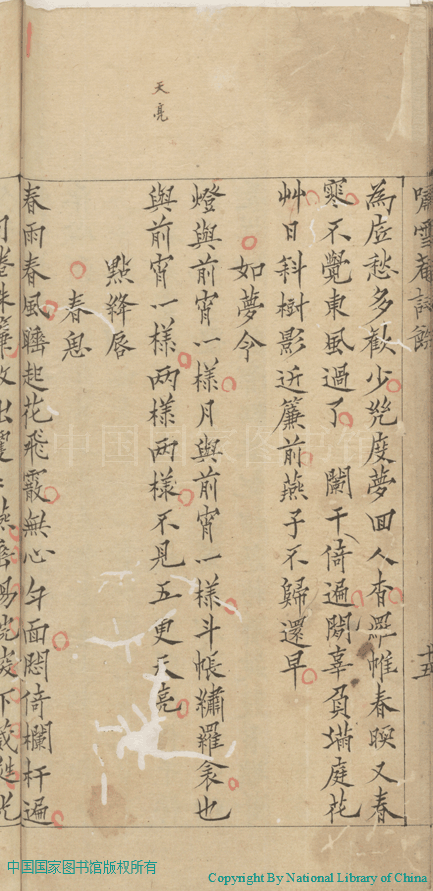 嘯雪菴詩餘
十五
為底愁多歡少幾度夢回人杳羅帷春暖又春
寒不覺東風過了 闌干倚遍閒辜負滿庭花
艸日斜樹影近簾前燕子不歸還早
如夢令
燈與前宵一樣月與前宵一樣斗帳繡羅衾也
與前宵一樣兩樣兩樣不見五更天亮
天亮
點絳唇
春息
春雨春風睡起花飛霰無心勻面悶倚欄杆遍
中国国家图书馆
中国国家图书馆版权所有
Copyright By National Library of China